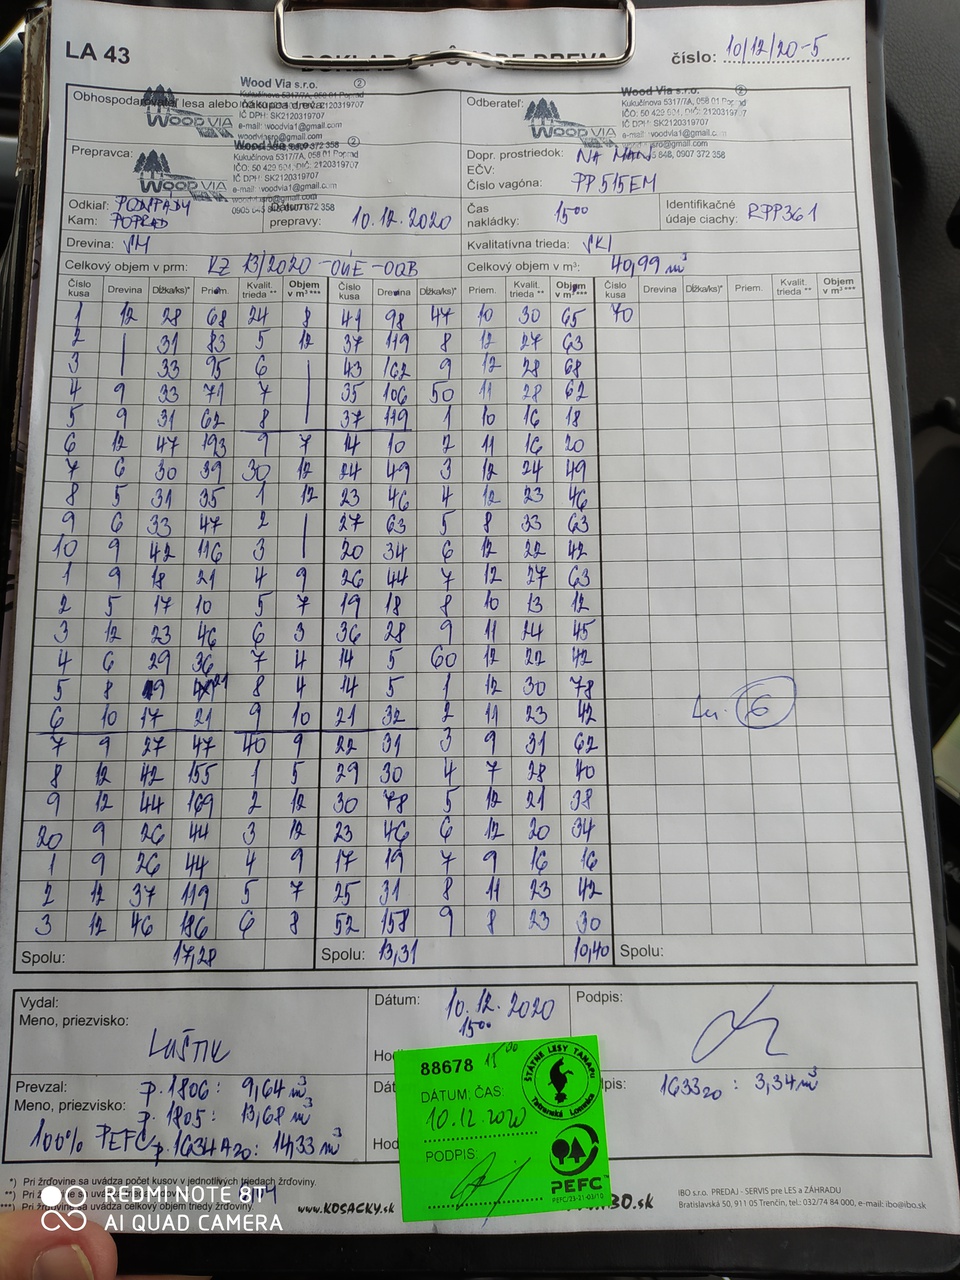 LA 43
číslo: 10/12/20-5
Obhospodarovateľ lesa alebo nákupca dreva:
Wood Via s.r.o. ②
Kukučínova 5317/7A, 058 01 Poprad
IČ DPH: SK2120319707
e-mail: woodvia1@gmail.com
WOOD VIA
Odberateľ:
Wood Via s.r.o. ②
Kukučínova 5317/7A, 058 01 Poprad
IČO: 50 429 504, DIČ: 2120319707
IČ DPH: SK2120319707
e-mail: woodvia1@gmail.com
WOOD VIA
Prepravca:
Wood Via s.r.o. ②
Kukučínova 5317/7A, 058 01 Poprad
IČ DPH: SK2120319707
WOOD VIA
Dopr. prostriedok: NA MAN
EČV:
Číslo vagóna: PP515EM
Odkiaľ: PODSPÁDY
Kam: POPRAD
Dátum prepravy: 10.12.2020
Čas nakládky: 15⁰⁰
Identifikačné údaje ciachy: RPP361
Drevina: SM
Kvalitatívna trieda: SKI
Celkový objem v prm: KZ 13/2020-OUE-OQB
Celkový objem v m³: 40,99 m³
Číslo kusa Drevina Dĺžka/ks)* Priem. Kvalit. trieda ** Objem v m³ *** Číslo kusa Drevina Dĺžka/ks)* Priem. Kvalit. trieda ** Objem v m³ *** Číslo kusa Drevina Dĺžka/ks)* Priem. Kvalit. trieda ** Objem v m³ ***
1 12 28 68 24 8 41 98 47 10 30 65 70
2 31 83 5 12 37 119 8 12 27 63
3 33 95 6 43 162 9 12 28 68
4 9 33 71 7 35 106 50 11 28 62
5 9 31 62 8 37 119 1 10 16 18
6 12 47 193 9 7 14 10 2 11 16 20
7 6 30 39 30 12 24 49 3 12 24 49
8 5 31 35 1 12 23 46 4 12 23 46
9 6 33 47 2 27 63 5 8 33 63
10 9 42 116 3 20 34 6 12 22 42
1 9 18 21 4 9 26 44 7 12 27 63
2 5 17 10 5 7 19 18 8 10 13 12
3 12 23 46 6 3 36 28 9 11 24 45
4 6 29 36 7 4 14 5 60 12 22 42
5 8 19 21 8 4 14 5 1 12 30 78
6 10 17 21 9 10 21 32 2 11 23 42
7 9 27 47 40 9 22 31 3 9 31 62
8 12 42 155 1 5 29 30 4 7 28 40
9 12 44 169 2 12 30 78 5 12 21 38
20 9 26 44 3 12 23 46 6 12 20 34
1 9 26 44 4 9 17 19 7 9 16 16
2 12 37 119 5 7 25 31 8 11 23 42
3 12 46 186 6 8 52 158 9 8 23 30
Spolu: 17,28 Spolu: 13,31 10,40 Spolu:
Vydal:
Meno, priezvisko:
LUŠTIK
Dátum: 10.12.2020
15⁰⁰
Podpis:
Prevzal:
Meno, priezvisko:
p. 1806: 9,64 m³
p. 1805: 13,68 m³
100% PEFC p. 1634A20: 14,33 m³
1633 20: 3,34 m³
88678 15⁰⁰
DÁTUM, ČAS:
10.12.2020
PODPIS:
ŠTÁTNE LESY TANAPU
Tatranská Lomnica
PEFC
PEFC/25-21-03/10
*) Pri žrďovine sa uvádza počet kusov v jednotlivých triedach žrďoviny.
***) Pri žrďovine sa uvádza celkový objem triedy žrďoviny.
www.KOSACKY.sk
IBO s.r.o. PREDAJ - SERVIS pre LES a ZÁHRADU
Bratislavská 50, 911 05 Trenčín, tel.: 032/74 84 000, e-mail: ibo@ibo.sk
REDMI NOTE 8T
AI QUAD CAMERA